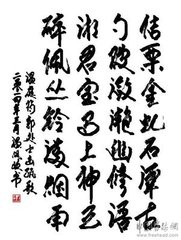 佶栗金虬石潭古
勺陂潋灩幽修语
湘君宝马上神云
碎佩丛铃满烟雨
温庭筠郭处士击瓯歌
二〇一四年三月